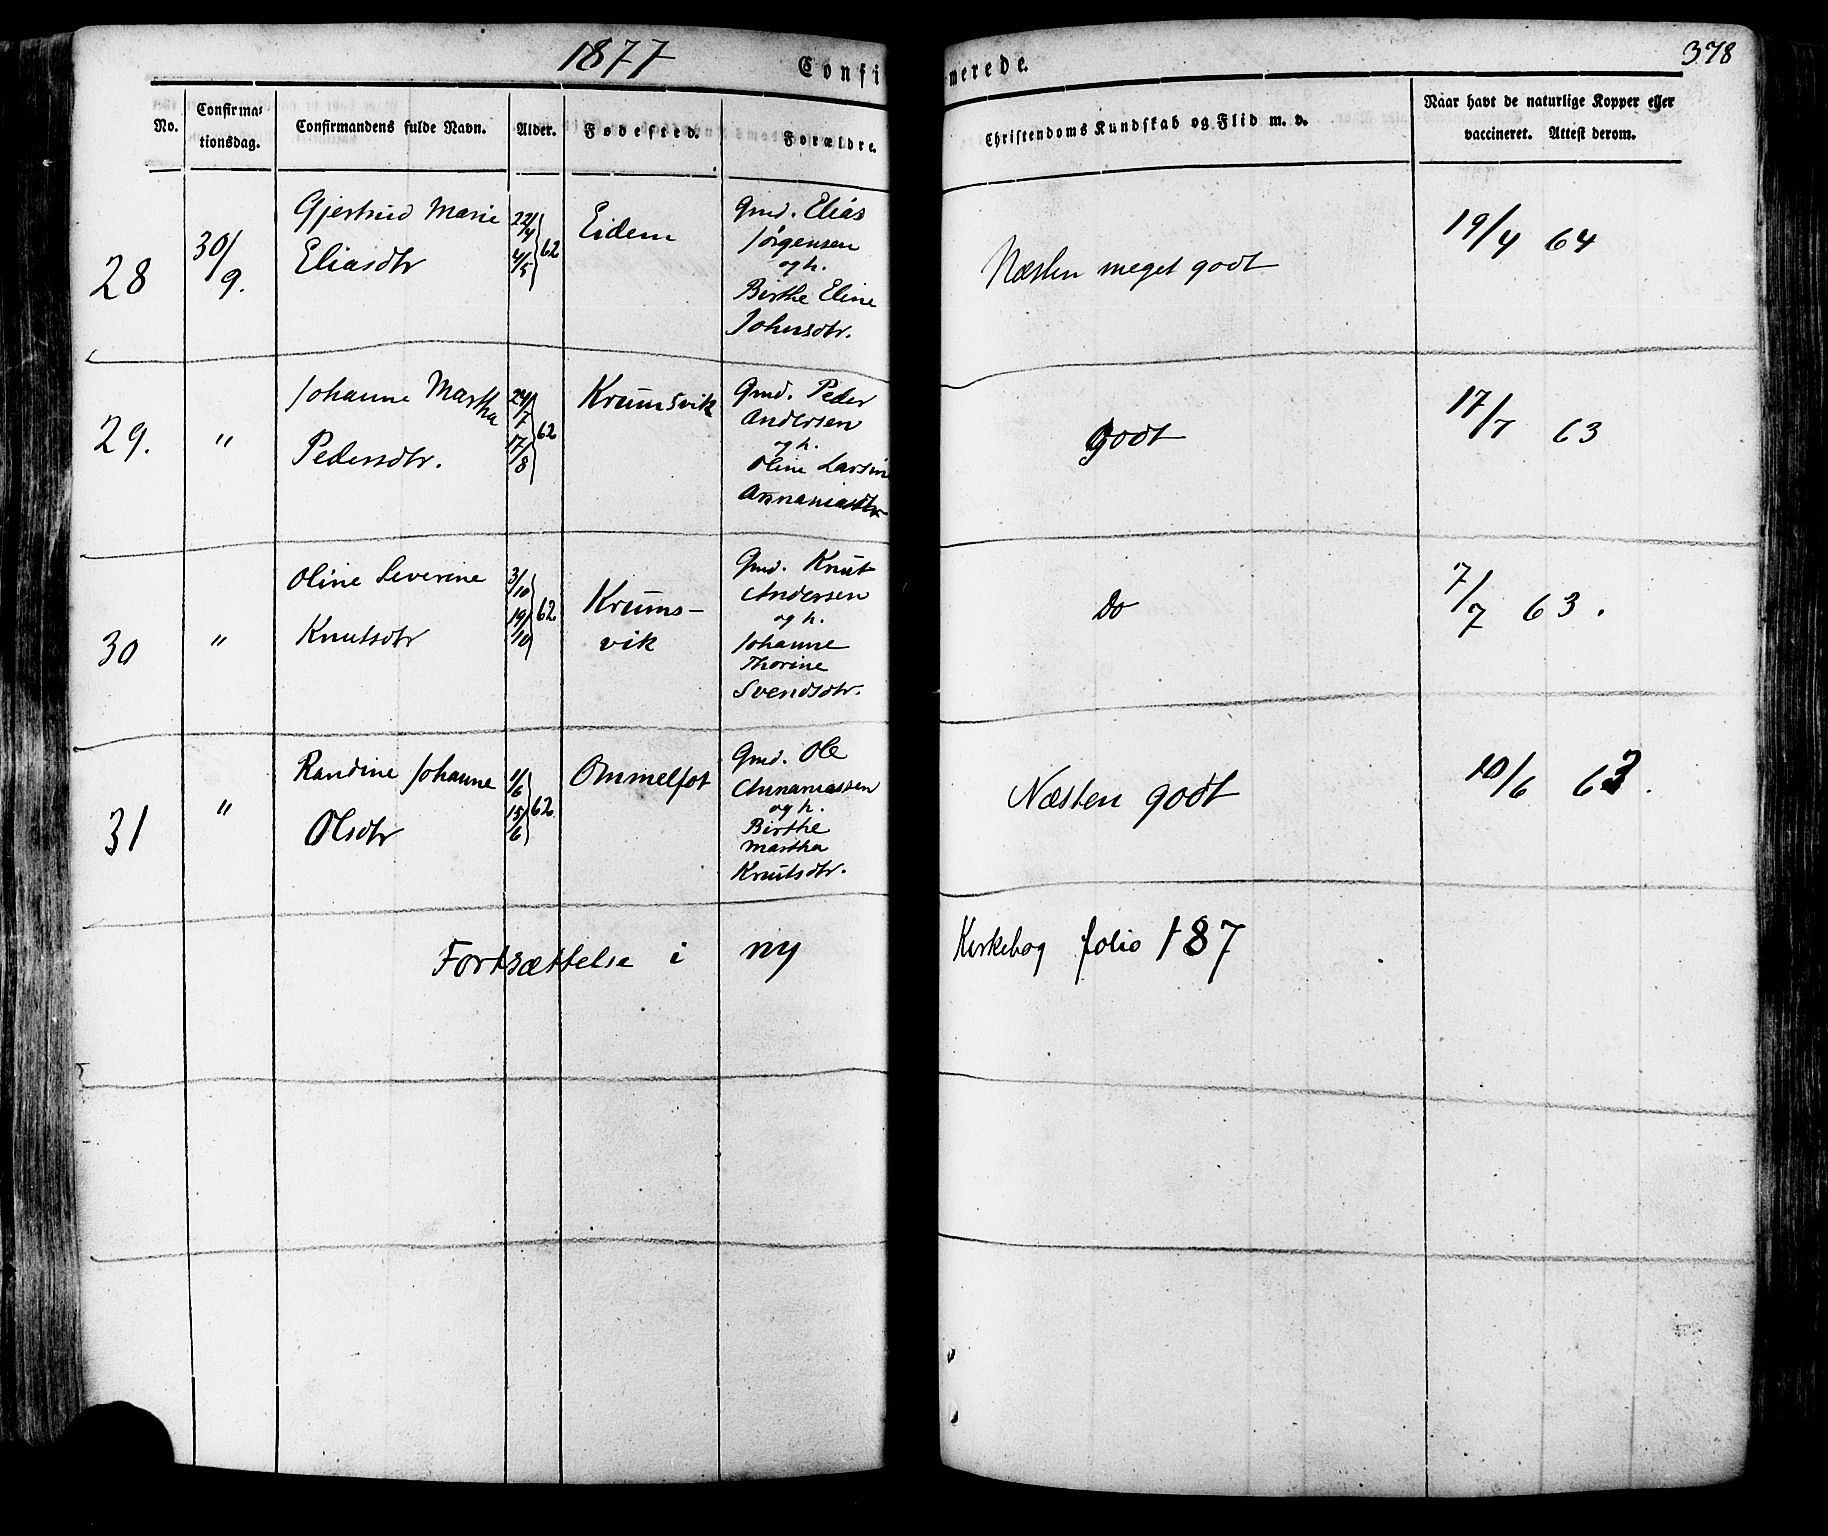 1877
Confirmerede.
378
No.
Confirma-
tionsdag.
Confirmandens fulde Navn.
Alder.
Fødested.
Forældre.
Christendoms Kundskab og Flid m. v.
Naar havt de naturlige Kopper eller
vaccineret. Attest derom.
28
30/9.
Gjertrud Marie
Eliasdtr
22/4
4/5
62
Eidem
Gmd. Elias
Jørgensen
og h.
Birthe Eline
Johnsdtr.
Næsten meget godt
19/4 64
29.
"
Johanne Martha
Pedersdtr.
24/7
17/8
62
Krumsvik
Gmd. Peder
Andersen
og h.
Oline Larsine
Annaniasdtr
godt
17/7 63
30
"
Oline Severine
Knutsdtr
3/10
19/10
62
Krums-
vik
Gmd. Knut
Andersen
og h.
Johanne
Thorine
Svendsdtr.
Do
7/7 63.
31
"
Randine Johanne
Olsdtr
1/6
15/6
62
Ommelfot
Gmd. Ole
Annaniassen
og h.
Birthe
Martha
Knutsdtr.
Næsten godt
10/6 63.
Fortsættelse i ny Kirkebog folio 187